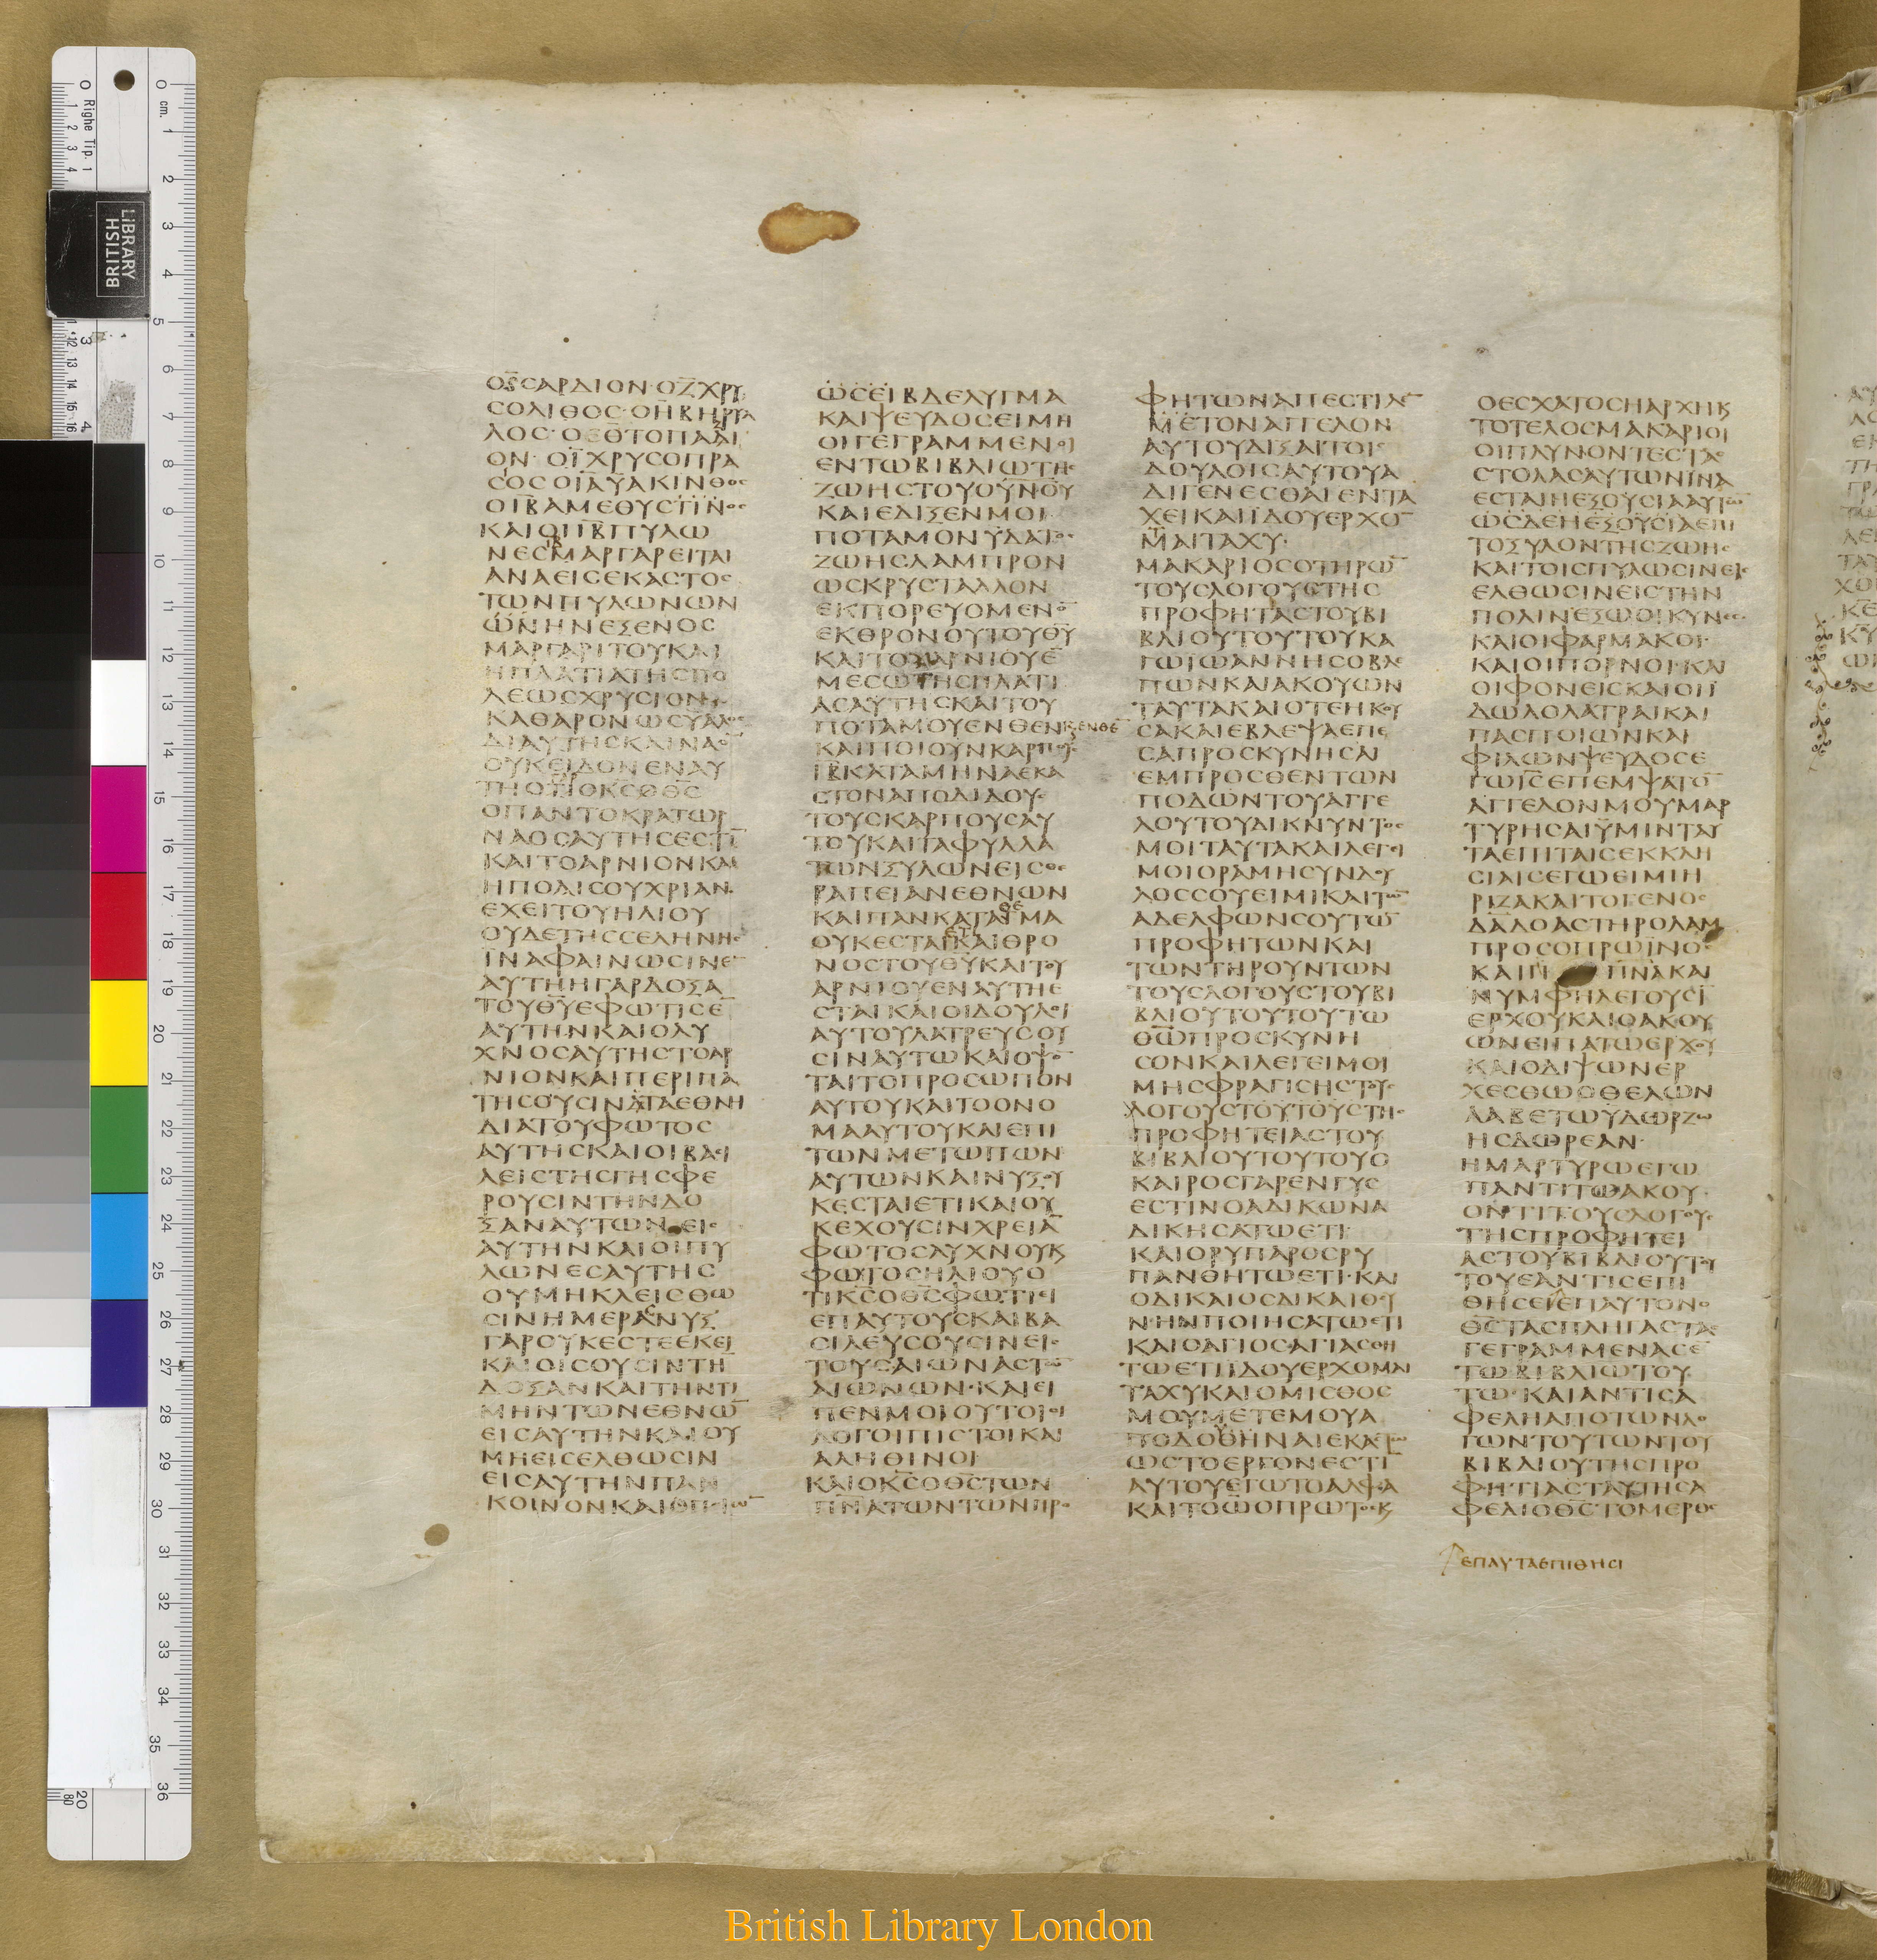 ΟϚ̅ΣΑΡΔΙΟΝ·ΟΖ̅ΧΡΥ
ϹΟΛΙΘΟϹ·ΟΗ̅ΒΗΡΥΛ
ΛΟϹ·ΟΘ̅ΤΟΠΑΔΙ
ΟΝ·ΟΙ̅ΧΡΥϹΟΠΡΑ
ϹΟϹΟΙΑ̅ΥΑΚΙΝΘΟϹ
ΟΙΒ̅ΑΜΕΘΥϹΤΙΝΟϹ
ΚΑΙΟΙΙΒ̅ΠΥΛΩ
ΝΕϹΙΒΜΑΡΓΑΡΕΙΤΑΙ
ΑΝΑΕΙϹΕΚΑϹΤΟϹ
ΤΩΝΠΥΛΩΝΩΝ
ΩΝΗΝΕΞΕΝΟϹ
ΜΑΡΓΑΡΙΤΟΥΚΑΙ
ΗΠΛΑΤΙΑΤΗϹΠΟ
ΛΕΩϹΧΡΥϹΙΟΝ
ΚΑΘΑΡΟΝΩϹΥΑΛΟϹ
ΔΙΑΥΤΗϹΚΑΙΝΑΟ̅
ΟΥΚΕΙΔΟΝΕΝΑΥ
ΤΗΟΤΙΟΚ̅Ϲ̅ΟΘ̅Ϲ̅
ΟΠΑΝΤΟΚΡΑΤΩΡ
ΝΑΟϹΑΥΤΗϹΕϹΤΙ̅
ΚΑΙΤΟΑΡΝΙΟΝΚΑΙ
ΗΠΟΛΙϹΟΥΧΡΙΑΝ
ΕΧΕΙΤΟΥΗΛΙΟΥ
ΟΥΔΕΤΗϹϹΕΛΗΝΗϹ
ΙΝΑΦΑΙΝΩϹΙΝΕ̅
ΑΥΤΗΗΓΑΡΔΟΞΑ
ΤΟΥΘ̅Υ̅ΕΦΩΤΙϹΕ̅
ΑΥΤΗΝΚΑΙΟΛΥ
ΧΝΟϹΑΥΤΗϹΤΟΑΡ
ΝΙΟΝΚΑΙΠΕΡΙΠΑ
ΤΗϹΟΥϹΙΝΤΑΕΘΝΗ
ΔΙΑΤΟΥΦΩΤΟϹ
ΑΥΤΗϹΚΑΙΟΙΒΑϹΙ
ΛΕΙϹΤΗϹΓΗϹΦΕ
ΡΟΥϹΙΝΤΗΝΔΟ
ΞΑΝΑΥΤΩΝΕΙϹ
ΑΥΤΗΝΚΑΙΟΙΠΥ
ΛΩΝΕϹΑΥΤΗϹ
ΟΥΜΗΚΛΕΙϹΘΩ
ϹΙΝΗΜΕΡΑϹΝΥΞ
ΓΑΡΟΥΚΕϹΤΕΕΚΕΙ
ΚΑΙΟΙϹΟΥϹΙΝΤΗ̅
ΔΟΞΑΝΚΑΙΤΗΝΤΙ
ΜΗΝΤΩΝΕΘΝΩ̅
ΕΙϹΑΥΤΗΝΚΑΙΟΥ
ΜΗΕΙϹΕΛΘΩϹΙΝ
ΕΙϹΑΥΤΗΝΠΑΝ
ΚΟΙΝΟΝΚΑΙ
ΩϹΕΙΒΔΕΛΥΓΜΑ
ΚΑΙΨΕΥΔΟϹΕΙΜΗ
ΟΙΓΕΓΡΑΜΜΕΝΟΙ
ΕΝΤΩΒΙΒΛΙΩΤΗϹ
ΖΩΗϹΤΟΥΟΥΝΟΥ
ΚΑΙΕΔΙΞΕΝΜΟΙ
ΠΟΤΑΜΟΝΥΔΑΤΟϹ
ΖΩΗϹΛΑΜΠΡΟΝ
ΩϹΚΡΥϹΤΑΛΛΟΝ
ΕΚΠΟΡΕΥΟΜΕΝΟ̅
ΕΚΘΡΟΝΟΥΤΟΥΘ̅Υ̅
ΚΑΙΤΟΥΑΡΝΙΟΥΕ̅
ΜΕϹΩΤΗϹΠΛΑΤΙ
ΑϹΑΥΤΗϹΚΑΙΤΟΥ
ΠΟΤΑΜΟΥΕΝΘΕΝΚΕΝΘΕ̅
ΚΑΙΠΟΙΟΥΝΚΑΡΠΟΥϹ
ΙΒ̅ΚΑΤΑΜΗΝΑΕΚΑ
ϹΤΟΝΑΠΟΔΙΔΟΥϹ
ΤΟΥϹΚΑΡΠΟΥϹΑΥ
ΤΟΥΚΑΙΤΑΦΥΛΛΑ
ΤΩΝΞΥΛΩΝΕΙϹΘΕ
ΡΑΠΕΙΑΝΕΘΝΩΝ
ΚΑΙΠΑΝΚΑΤΑΘΕΜΑ
ΟΥΚΕϹΤΑΙΕΤΙΚΑΙΘΡΟ
ΝΟϹΤΟΥΘ̅Υ̅ΚΑΙΤΟΥ
ΑΡΝΙΟΥΕΝΑΥΤΗΕ
ϹΤΑΙΚΑΙΟΙΔΟΥΛΟΙ
ΑΥΤΟΥΛΑΤΡΕΥϹΟΥ
ϹΙΝΑΥΤΩΚΑΙΟΨΟ̅
ΤΑΙΤΟΠΡΟϹΩΠΟΝ
ΑΥΤΟΥΚΑΙΤΟΟΝΟ
ΜΑΑΥΤΟΥΚΑΙΕΠΙ
ΤΩΝΜΕΤΩΠΩΝ
ΑΥΤΩΝΚΑΙΝΥΞΟΥ
ΚΕϹΤΑΙΕΤΙΚΑΙΟΥ
ΚΕΧΟΥϹΙΝΧΡΕΙΑ̅
ΦΩΤΟϹΛΥΧΝΟΥΚ
ΦΩΤΟϹΗΛΙΟΥΟ
ΤΙΚ̅Ϲ̅ΟΘ̅Ϲ̅ΦΩΤΙΕΙ
ΕΠΑΥΤΟΥϹΚΑΙΒΑ
ϹΙΛΕΥϹΟΥϹΙΝΕΙϹ
ΤΟΥϹΑΙΩΝΑϹΤΩ̅
ΑΙΩΝΩΝ·ΚΑΙΕΙ
ΠΕΝΜΟΙΟΥΤΟΙΟΙ
ΛΟΓΟΙΠΙϹΤΟΙΚΑΙ
ΑΛΗΘΙΝΟΙ
ΚΑΙΟΚ̅Ϲ̅ΟΘ̅Ϲ̅ΤΩΝ
Π̅Ν̅ΑΤΩΝΤΩΝΠΡΟ
ΦΗΤΩΝΑΠΕϹΤΙΛΕ̅
ΜΕΤΟΝΑΓΓΕΛΟΝ
ΑΥΤΟΥΔΙΞΑΙΤΟΙϹ
ΔΟΥΛΟΙϹΑΥΤΟΥΑ
ΔΙΓΕΝΕϹΘΑΙΕΝΤΑ
ΧΕΙΚΑΙΙΔΟΥΕΡΧΟ̅
ΜΑΙΤΑΧΥ·
ΜΑΚΑΡΙΟϹΟΤΗΡΩ̅
ΤΟΥϹΛΟΓΟΥϹΤΗϹ
ΠΡΟΦΗΤΑϹΤΟΥΒΙ
ΒΛΙΟΥΤΟΥΤΟΥΚΑ
ΓΩΙΩΑΝΝΗϹΟΒΛΕ
ΠΩΝΚΑΙΑΚΟΥΩΝ
ΤΑΥΤΑΚΑΙΟΤΕΗΚΟΥ
ϹΑΚΑΙΕΒΛΕΨΑΕΠΕ
ϹΑΠΡΟϹΚΥΝΗϹΑΙ
ΕΜΠΡΟϹΘΕΝΤΩΝ
ΠΟΔΩΝΤΟΥΑΓΓΕ
ΛΟΥΤΟΥΔΙΚΝΥΝΤΟϹ
ΜΟΙΤΑΥΤΑΚΑΙΛΕΓΕΙ
ΜΟΙΟΡΑΜΗϹΥΝΔΟΥ
ΛΟϹϹΟΥΕΙΜΙΚΑΙΤΩ̅
ΑΔΕΛΦΩΝϹΟΥΤΩ̅
ΠΡΟΦΗΤΩΝΚΑΙ
ΤΩΝΤΗΡΟΥΝΤΩΝ
ΤΟΥϹΛΟΓΟΥϹΤΟΥΒΙ
ΒΛΙΟΥΤΟΥΤΟΥΤΩ
ΘΩ̅ΠΡΟϹΚΥΝΗ
ϹΟΝΚΑΙΛΕΓΕΙΜΟΙ
ΜΗϹΦΡΑΓΙϹΗϹΤΟΥϹ
ΛΟΓΟΥϹΤΟΥΤΟΥϹΤΗϹ
ΠΡΟΦΗΤΕΙΑϹΤΟΥ
ΒΙΒΛΙΟΥΤΟΥΤΟΥΟ
ΚΑΙΡΟϹΓΑΡΕΝΓΥϹ
ΕϹΤΙΝΟΑΔΙΚΩΝΑ
ΔΙΚΗϹΑΤΩΕΤΙ
ΚΑΙΟΡΥΠΑΡΟϹΡΥ
ΠΑΝΘΗΤΩΕΤΙ·ΚΑΙ
ΟΔΙΚΑΙΟϹΔΙΚΑΙΟϹΥ
ΝΗΝΠΟΙΗϹΑΤΩΕΤΙ
ΚΑΙΟΑΓΙΟϹΑΓΙΑϹΘΗ
ΤΩΕΤΙΙΔΟΥΕΡΧΟΜΑΙ
ΤΑΧΥΚΑΙΟΜΙϹΘΟϹ
ΜΟΥΜΕΤΕΜΟΥΑ
ΠΟΔΟΘΗΝΑΙΕΚΑϹΤΩ
ΩϹΤΟΕΡΓΟΝΕϹΤΙ̅
ΑΥΤΟΥΕΓΩΤΟΑΛΦΑ
ΚΑΙΤΟΩ̅ΟΠΡΩΤΟϹΚ
ΟΕϹΧΑΤΟϹΗΑΡΧΗΚ
ΤΟΤΕΛΟϹΜΑΚΑΡΙΟΙ
ΟΙΠΛΥΝΟΝΤΕϹΤΑϹ
ϹΤΟΛΑϹΑΥΤΩΝΙΝΑ
ΕϹΤΑΙΗΕΞΟΥϹΙΑΑΥΤΩ̅
ΩϹΔΕΗΕΞΟΥϹΙΑΕΠΙ
ΤΟΞΥΛΟΝΤΗϹΖΩΗϹ
ΚΑΙΤΟΙϹΠΥΛΩϹΙΝΕΙϹ
ΕΛΘΩϹΙΝΕΙϹΤΗΝ
ΠΟΛΙΝΕΞΩΟΙΚΥΝΕϹ
ΚΑΙΟΙΦΑΡΜΑΚΟΙ·
ΚΑΙΟΙΠΟΡΝΟΙ·ΚΑΙ
ΟΙΦΟΝΕΙϹΚΑΙΟΙΙ
ΔΩΛΟΛΑΤΡΑΙΚΑΙ
ΠΑϹΠΟΙΩΝΚΑΙ
ΦΙΛΩΝΨΕΥΔΟϹΕ
ΓΩΙ̅Ϲ̅ΕΠΕΜΨΑΤΟ̅
ΑΓΓΕΛΟΝΜΟΥΜΑΡ
ΤΥΡΗϹΑΙΥΜΙΝΤΑΥ
ΤΑΕΠΙΤΑΙϹΕΚΚΛΗ
ϹΙΑΙϹΕΓΩΕΙΜΙΗ
ΡΙΖΑΚΑΙΤΟΓΕΝΟϹ
ΔΑ̅Δ̅ΟΑϹΤΗΡΟΛΑΜ
ΠΡΟϹΟΠΡΩΙΝΟϹ
ΚΑΙ ΠΝΑΚΑΙ
ΝΥΜΦΗΛΕΓΟΥϹΙ̅
ΕΡΧΟΥΚΑΙΟΑΚΟΥ
ΩΝΕΙΠΑΤΩΕΡΧΟΥ
ΚΑΙΟΔΙΨΩΝΕΡ
ΧΕϹΘΩΟΘΕΛΩΝ
ΛΑΒΕΤΩΥΔΩΡΖΩ
ΗϹΔΩΡΕΑΝ·
ΗΜΑΡΤΥΡΩΕΓΩ
ΠΑΝΤΙΤΩΑΚΟΥ
ΟΝΤΙΤΟΥϹΛΟΓΟΥϹ
ΤΗϹΠΡΟΦΗΤΕΙ
ΑϹΤΟΥΒΙΒΛΙΟΥΤΟΥ
ΤΟΥΕΑΝΤΙϹΕΠΙ
ΘΗϹΕΙΕΠΑΥΤΟΝΟ
Θ̅Ϲ̅ΤΑϹΠΛΗΓΑϹΤΑϹ
ΓΕΓΡΑΜΜΕΝΑϹΕ̅
ΤΩΒΙΒΛΙΩΤΟΥ
ΤΩ·ΚΑΙΑΝΤΙϹΑ
ΦΕΛΗΑΠΟΤΩΝΛΟ
ΓΩΝΤΟΥΤΩΝΤΟΥ
ΒΙΒΛΙΟΥΤΗϹΠΡΟ
ΦΗΤΙΑϹΤΑΥΤΗϹΑ
ΦΕΛΙΟΘ̅Ϲ̅ΤΟΜΕΡΟϹ
ΕΠΑΥΤΑΕΠΙΘΗϹΙ
LIBRARY
BRITISH
Righe Tip.
cm.
British Library London